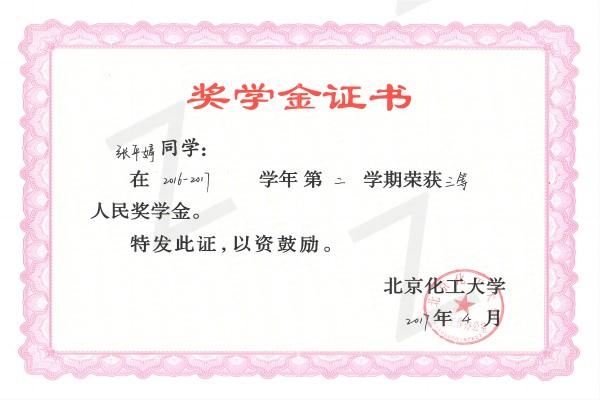 奖学金证书
张平婷 同学：
在 2016-2017 学年 第 二 学期荣获 三等
人民奖学金。
特发此证，以资鼓励。
北京化工大学
2017 年 4 月